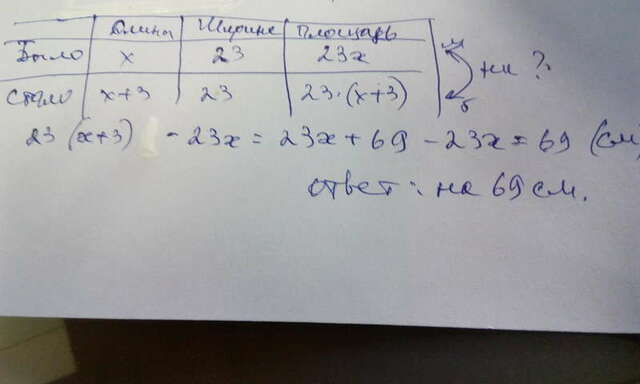 Длина Ширина Площадь
Было x 23 23x м
на ?
стало x+3 23 23·(x+3) б
23 (x+3) - 23x = 23x + 69 - 23x = 69 (см
ответ: на 69 см.